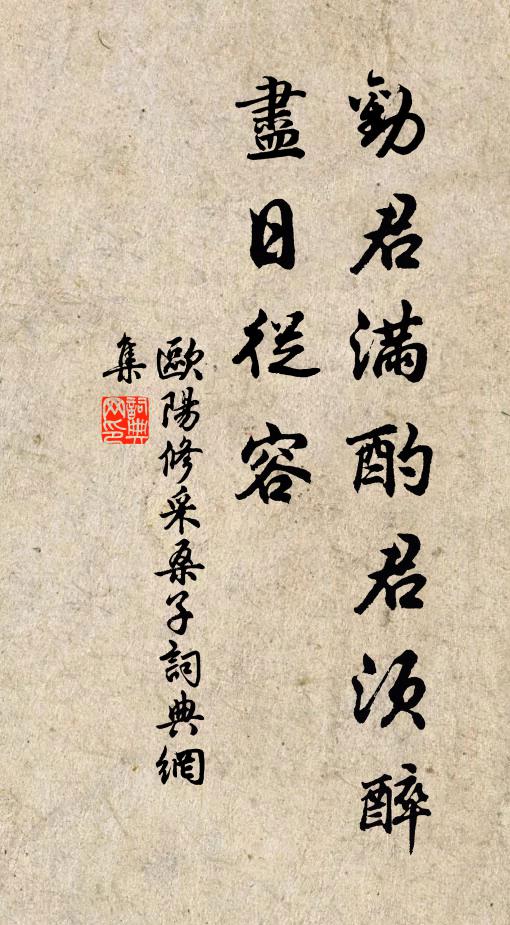 勸君滿酌君須醉
盡日從容
歐陽修采桑子詞典網
集
詞典網印